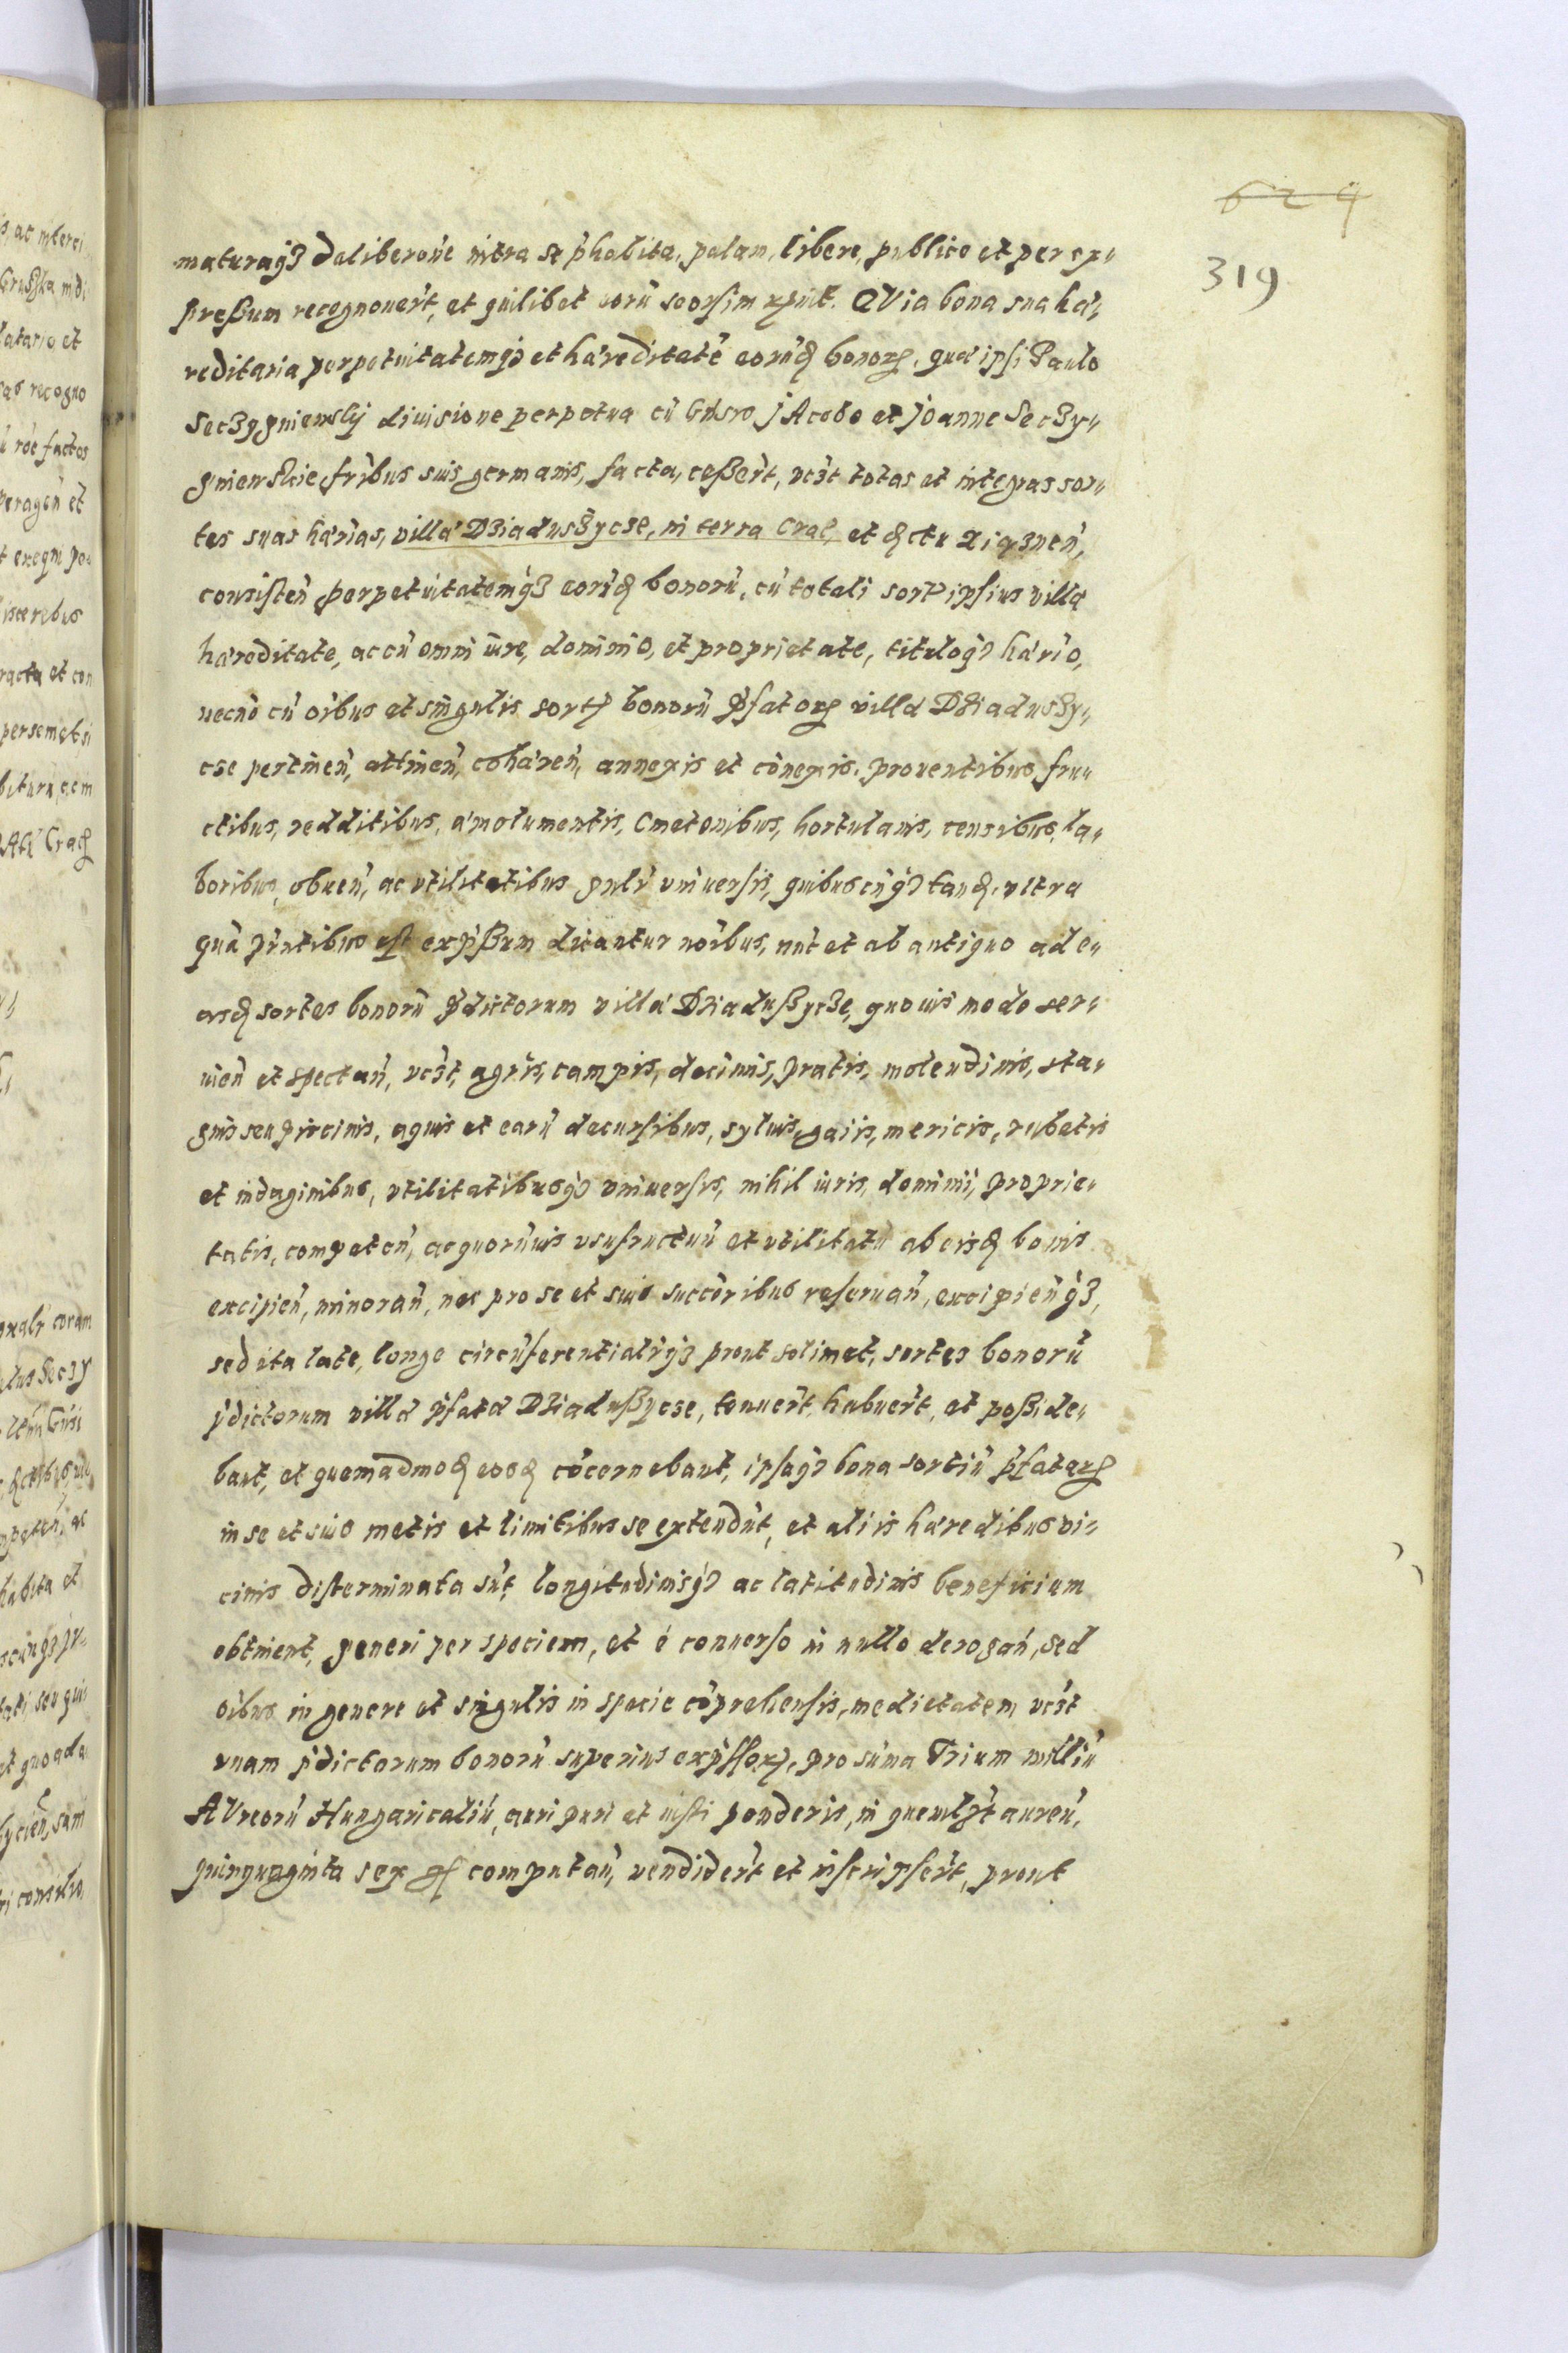 629
319
maturaqȝ deliberõne intra se p̓habita, palam, libere, publice et per ex„
preßum recognouer̃t, et quilibet eorũ seorsim
QVia bona sua hæ„
reditaria perpetuitatemqȝ et hæreditatẽ eorũd bonorꝝ, quæ ipsi Paulo
Seczygniewsky diuisione perpetua cũ Gñsro jAcobo et joanne Seczy„
gniewskie fribus suis germanis, facta, ceßer̃t, vcȝt totas et integras sor„
tes suas hærias, villæ Dziaduszycze, in terra Crac, et
consisteñ perpetuitatemqȝ eorũd bonorũ, cũ totali sorte ipsius villæ
hæreditate, ac cũ omni iure, dominio, et proprietate, tituloqȝ hærio,
necnõ cũ oĩbus et singulis bonorũ p̓fatorꝝ villæ Dziaduszy„
cze pertineñ, attineñ, cohæreñ, annexis et cõnexis, prouentibus, fru„
ctibus, redditibus, æmolumentis, Cmetonibus, hortulanis, censibus, la„
boribus, obueñ, ac vtilitatibus vniuersis, quibuscũqȝ tand, vltra
quã p̃ntibus est exp̓ßum dicantur noĩbus, nũc et ab antiquo ad e„
asd sortes bonorũ p̓dictorum villæ Dziadußycze, quouis modo ser„
uieñ et spectañ, vcȝt, agris, campis, decimis, pratis, molendinis, sta„
gnis seu piscinis, aquis et earũ decursibus, syluis, gaiis, mericis, rubetis
et indaginibus, vtilitatibusqȝ vniuersis, nihil iuris, dominii, proprie„
tatis, competeñ, ac quorũuis vsufructuũ et vtilitatũ ab eisd bonis
excipieñ, minorañ, nec pro se et suis succõribus reseruañ, excipieñqȝ,
sed ita late, longe circũferentialrqȝ prout solimet, sortes bonorũ
p̓dictorum villæ p̓fatæ Dziadußycze, tenuer̃t, habuer̃t, et poßide„
bant, et quemadmod eosd cõcernebant, ipsaqȝ bona sortiũ p̓fatarꝝ
in se et suis metis et limitibus se extendũt, et aliis hæredibus vi„
cinis disterminata sũt, longitudinisqȝ ac latitudinis beneficium
obtinent, generi per speciem, et è conuerso in nullo derogañ, sed
oĩbus in genere et singulis in specie cõprehensis, medietatem vcȝt
vnam p̓dictorum bonorũ superius exp̓ssorꝝ, pro sũma Trium milliũ
AVreorũ Hungaricaliũ, auri puri et iusti ponderis, in quemlȝt aureũ,
quinquaginta sex computañ, vendider̃t et inscripser̃t, prout